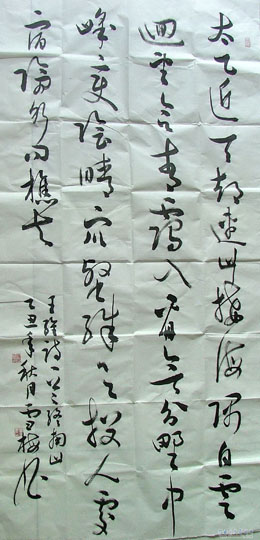 太乙近天都連山接海隅白雲
迴望合青靄入看無分野中
峰變陰晴衆壑殊欲投人處
宿隔水問樵夫
王維詩一首終南山
乙丑年秋月雪梅書